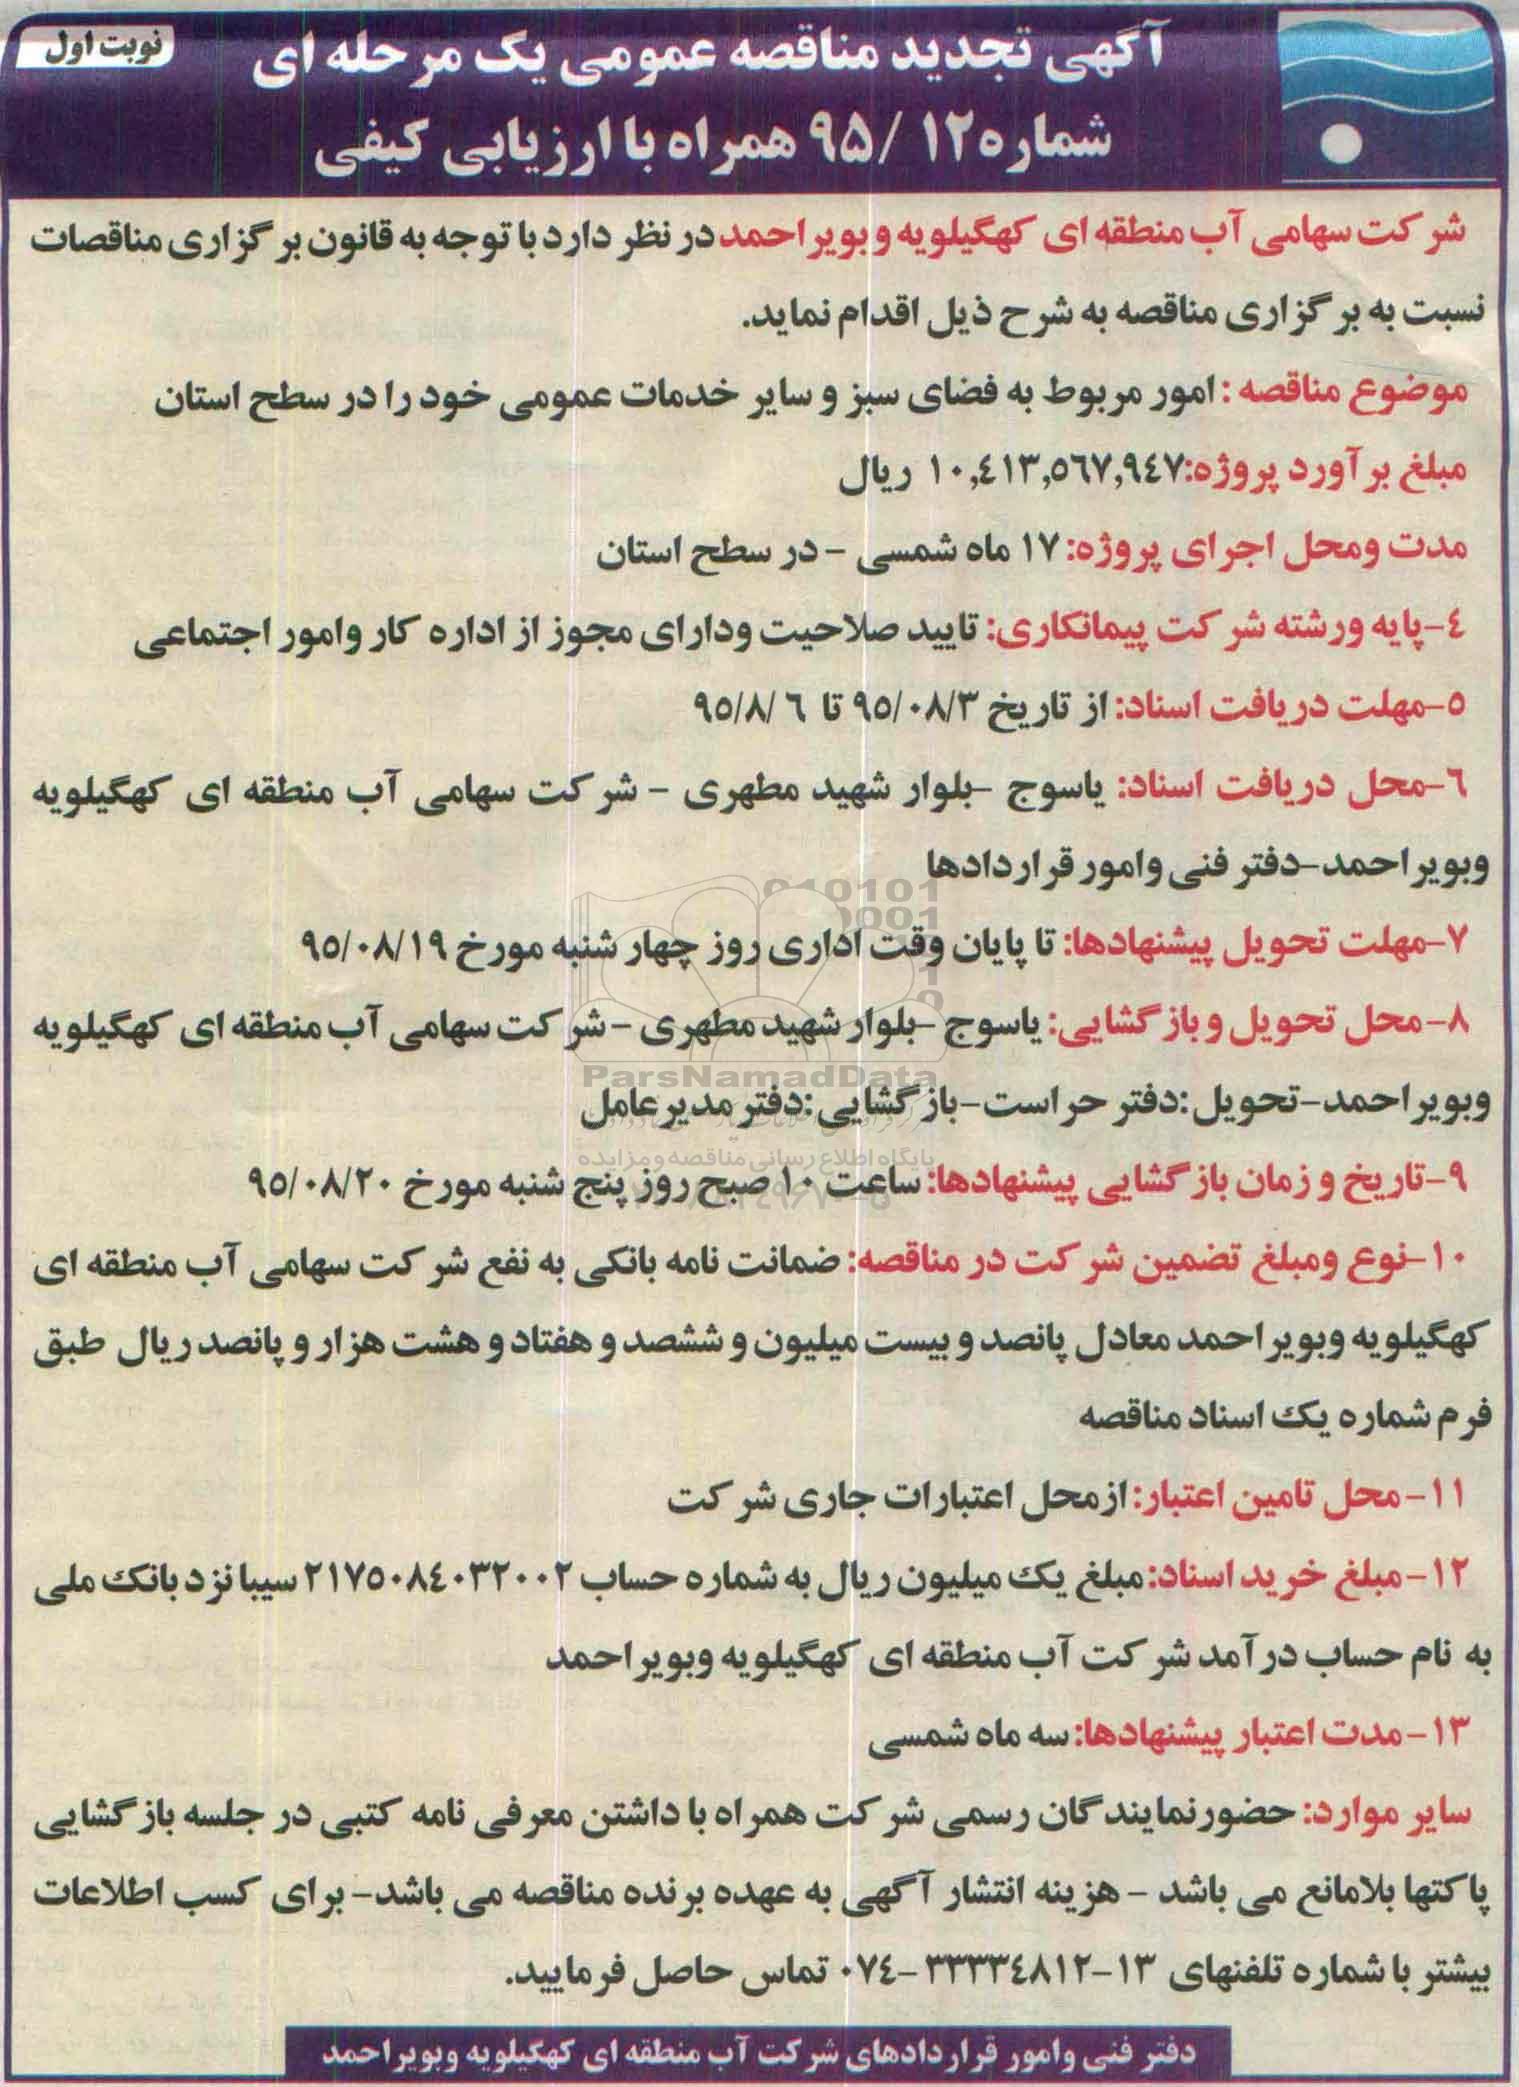 نوبت اول
آگهی تجدید مناقصه عمومی یک مرحله ای
شماره ۱۲/ ۹۵ همراه با ارزیابی کیفی
شرکت سهامی آب منطقه ای کهگیلویه و بویراحمد در نظر دارد با توجه به قانون برگزاری مناقصات
نسبت به برگزاری مناقصه به شرح ذیل اقدام نماید.
موضوع مناقصه : امور مربوط به فضای سبز و سایر خدمات عمومی خود را در سطح استان
مبلغ برآورد پروژه:۱۰,٤۱۳,٥٦۷,۹٤۷ ریال
مدت ومحل اجرای پروژه: ۱۷ ماه شمسی - در سطح استان
٤-پایه ورشته شرکت پیمانکاری: تایید صلاحیت ودارای مجوز از اداره کار وامور اجتماعی
٥-مهلت دریافت اسناد: از تاریخ ۹٥/۰۸/۳ تا ۹٥/۸/ ٦
٦-محل دریافت اسناد: یاسوج -بلوار شهید مطهری - شرکت سهامی آب منطقه ای کهگیلویه
وبویراحمد-دفتر فنی وامور قراردادها
۷-مهلت تحویل پیشنهادها: تا پایان وقت اداری روز چهار شنبه مورخ ۹٥/۰۸/۱۹
۸-محل تحویل و بازگشایی: یاسوج -بلوار شهید مطهری -شرکت سهامی آب منطقه ای کهگیلویه
وبویراحمد-تحویل:دفتر حراست-بازگشایی:دفتر مدیرعامل
۹-تاریخ و زمان بازگشایی پیشنهادها: ساعت ۱۰ صبح روز پنج شنبه مورخ ۹٥/۰۸/۲۰
۱۰-نوع ومبلغ تضمین شرکت در مناقصه: ضمانت نامه بانکی به نفع شرکت سهامی آب منطقه ای
کهگیلویه وبویراحمد معادل پانصد و بیست میلیون و ششصد و هفتاد و هشت هزار و پانصد ریال طبق
فرم شماره یک اسناد مناقصه
۱۱-محل تامین اعتبار: ازمحل اعتبارات جاری شرکت
۱۲-مبلغ خرید اسناد: مبلغ یک میلیون ریال به شماره حساب ۲۱۷٥۰۸٤۰۳۲۰۰۲ سیبا نزد بانک ملی
به نام حساب درآمد شرکت آب منطقه ای کهگیلویه وبویراحمد
۱۳-مدت اعتبار پیشنهادها: سه ماه شمسی
سایر موارد: حضورنمایندگان رسمی شرکت همراه با داشتن معرفی نامه کتبی در جلسه بازگشایی
پاکتها بلامانع می باشد - هزینه انتشار آگهی به عهده برنده مناقصه می باشد- برای کسب اطلاعات
بیشتر با شماره تلفنهای ۱۳-۳۳۳۳٤۸۱۲-۰۷٤ تماس حاصل فرمایید.
دفتر فنی وامور قراردادهای شرکت آب منطقه ای کهگیلویه وبویراحمد
ParsNamadData
پایگاه اطلاع رسانی مناقصه و مزایده